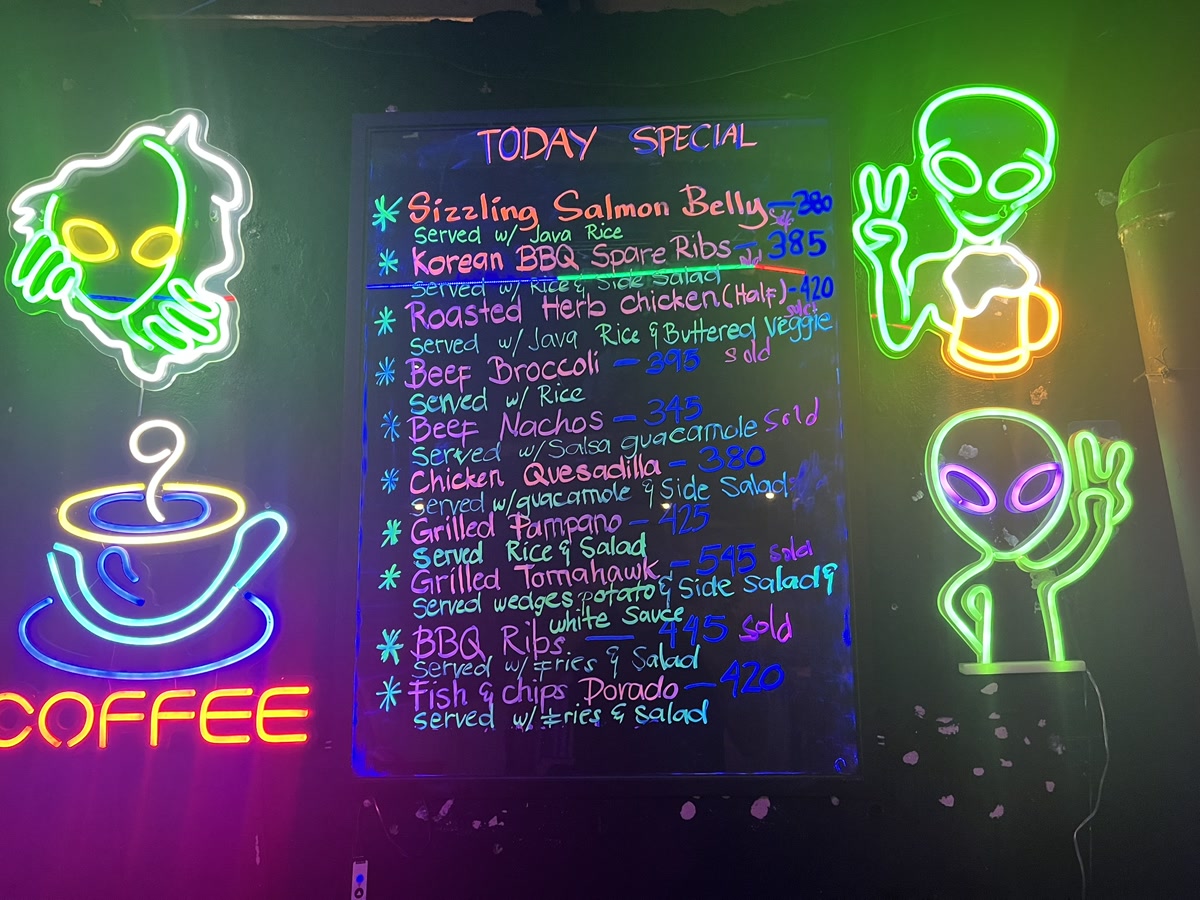 TODAY SPECIAL
* Sizzling Salmon Belly — 380
Served w/ Java Rice
* Korean BBQ Spare Ribs — 385
Served w/ Rice & Side Salad
* Roasted Herb Chicken (Half) - 420
Served w/ Java Rice & Buttered Veggie
* Beef Broccoli — 395 sold
Served w/ Rice
* Beef Nachos — 345 Sold
Served w/ Salsa guacamole
* Chicken Quesadilla — 380
Served w/ guacamole & Side Salad
* Grilled Pampano — 425
Served Rice & Salad
* Grilled Tomahawk — 545 sold
Served wedges potato & Side Salad &
white Sauce
* BBQ Ribs — 445 Sold
Served w/ Fries & Salad
* Fish & chips Dorado — 420
Served w/ Fries & Salad
COFFEE